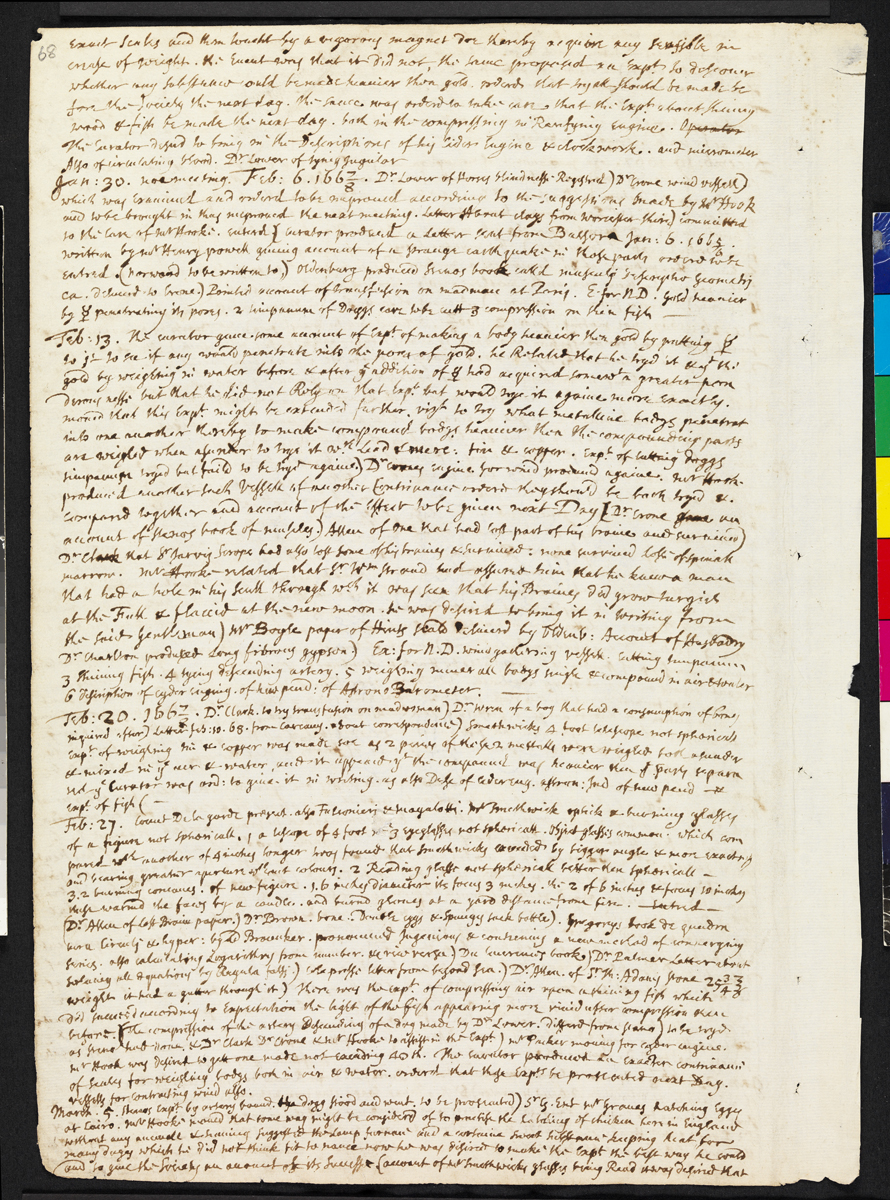 68
Exact scales and then touch't by a vigorous magnet doe thereby acquire any sensible in
crease of weight. the Event was that it did not, the same proposed an Expt. to discover
whether any substance could be made heavier then gold. orderd that tryall should be made be
fore the society the next day. the same was orderd to take care that the Expt. about shining
wood & fish be made the next day. both in the compressing in Rarifying Engine. Operator
The Curator desird to bring in the Descriptions of his Cider Engine & clockwork.. and micrometer
Also of circulating blood. Dr. Lower of tying Jugular
Jan: 30. noe meeting. Feb: 6. 1667/8. Dr. Lower of Horses blindnesse Registred) Dr Crone wind vessell)
which was Examined and orderd to be improved according to the suggestions made by Mr Hook
and to be brought in thus improved the next meeting. Letter About clays from worcester shire) committed
to the care of Mr Hooke. entred [Curator produced a Letter sent from Balsora Jan. 6. 1665/6.
written by Mr Henry powell giving account of a strange earthquake in those parts orderd to be
entred. (Norwood to be written to,) Oldenburg produced Stenos book calld musculi Descriptio Geometri
ca. deliverd to Crone) Printed account of transfusion on madman at Paris. E. for N.D. Gold heavier
by ☿ penetrating its pores. 2 timpanum of Doggs eare to be cutt 3 compression on shin fish —
Feb: 13. The curator gave some account of Expt. of making a body heavier then gold by putting ☿
to it to see if any would penetrate into the pores of gold. he Related that he tryd it & yt the
gold by weighing in water before & after ye addition of ☿ had acquired somewt. a greater pon
derousnesse but that he did not Rely on that Expt. but would trye it againe more Exactly.
moved that this Expt. might be extended further, vizt. to try what metalline bodys penetrat
into one another thereby to make compound bodys heavier then the compounding parts
are weighed when asunder to trye it wth Lead & merc: tin & copper. Expt. of cutting doggs
timpanum tryed but faild to be tryd againe.) Dr Crones engine for wind producd againe. Mr Hook
produced another such vessell of another Contrivance orderd they should be both tryd &
compared together and account of the Effect to be given next Day [Dr. Crone gave an
account of Stenos book of muscles.) Allen of One that had lost part of his braine and survived)
Dr Clark that Sr. Jarvis Scrops had also lost some of his braines & survived. none survived losse of spinall
marrow. Mr Hooke related that Sr. Wm Stroud had assured him that he knew a man
that had a hole in his scull through wch it was seen that his Braines did grow turgid
at the Full & flaccid at the new moon. he was desired to bring it in writing from
the said Gentleman) Mr Boyle paper of Hints seald deliverd by Oldenb: Account of Husbandry
Dr Charlton produced Long fibrous gypson) Ex: for N.D. wind gathering vessell. cutting timpanum
3 shining fish. 4 tying descending artery. 5 weighing minerall bodys single & compound in air & water
6 description of cyder enging. of new pend: of Aprons Barometer.
Feb: 20. 1667/8. Dr. Clark. to try transfusion on mad woman) Dr. Wren of a boy that had a consumption of bones
inquired after) Letter Feb: 10. 68. from Carcavy. about correspondence) Smethwicks 4 foot telescope not sphericall
Expt. of weighing tin & copper was made soe as 2 peices of these 2 mettalls were weighed both asunder
& mixed in ye aer & water. and it appeared yt the compound was heavier then ye parts separa
ted ye Curator was ord: to give it in writing. as also Desc of Cider eng. Ind of new pend &
Expt. of fish (—
Feb: 27. Count De la garde present. also Falconieri & magalotti. Mr Smethwick optick & burning glasses
of a figure not sphericall. 1 a telescope of 4 foot & 3 eyeglasses not sphericall. object glasses common: which com
pared with another of 4 inches longer twas found that Smethwicks exceeded by bigger angle & more exactness
and bearing greater aperture wthout colours. 2 Reading glasse not sphericall better then sphericall —
3. 2 burning concaves. of new figure. 1. 6 inches diameter its focus 3 inches. the 2 of 6 inches & focus 10 inches
these warmd the faces by a candle. and burnd gloves at a yard distance from fire. — Entred —
Dr. Allen of Lost Brain paper.) Dr Brown. bone. Double eggs & Spungy suck bottle). Gregorys book de quadra
tura Circuli & hyper: by Ld Brouncker. pronounced Ingenious & containing a new method of converging
series. also calculating Logarithms from number. & vice versa) Du Laurence book) Dr. Palmer Letter about
solving all Equations by Regula falsi.) Colepresse letter from beyond sea.) Dr. Allen. of Sr. Th: Adams stone 25 3/4
weight it had a gutter through it) There was the Expt. of compressing air upon a shining fish which
did succeed according to Expectation the light of the fish appearing more vivid after compression then
before. [The compression of the artery Descending of a dog made by Dr. Lower. differd from Steno) to be tryd
as Steno had done. & Dr Clark Dr Crone & Mr Hooke to assist in the Expt.) Mr Packer moving for cyder engine.
Mr Hook was desird to gett one made not exceeding 40sh. The curator produced an Exacter contrivanc
of scales for weighing bodys both in air & water. orderd that those Expts be prosecuted next Day.
vessells for contracting wind also.
March. 5. Stenos Expt. by artery bound. the dogg stood and went. to be prosecuted) Sr G. Ent Mr Graves hatching Egges
at Cairo. Mr Hooke moved that some way might be considerd of to practise the hatching of chicken here in England
without any animall & having suggested the Lamp furnace and a certaine keeping heat for
many dayes which he did not think fit to name now he was desired to make the Expt. the best way he could
and to give the Society an account of its successe (account of Mr Smethwicks glasses being Read it was desired that